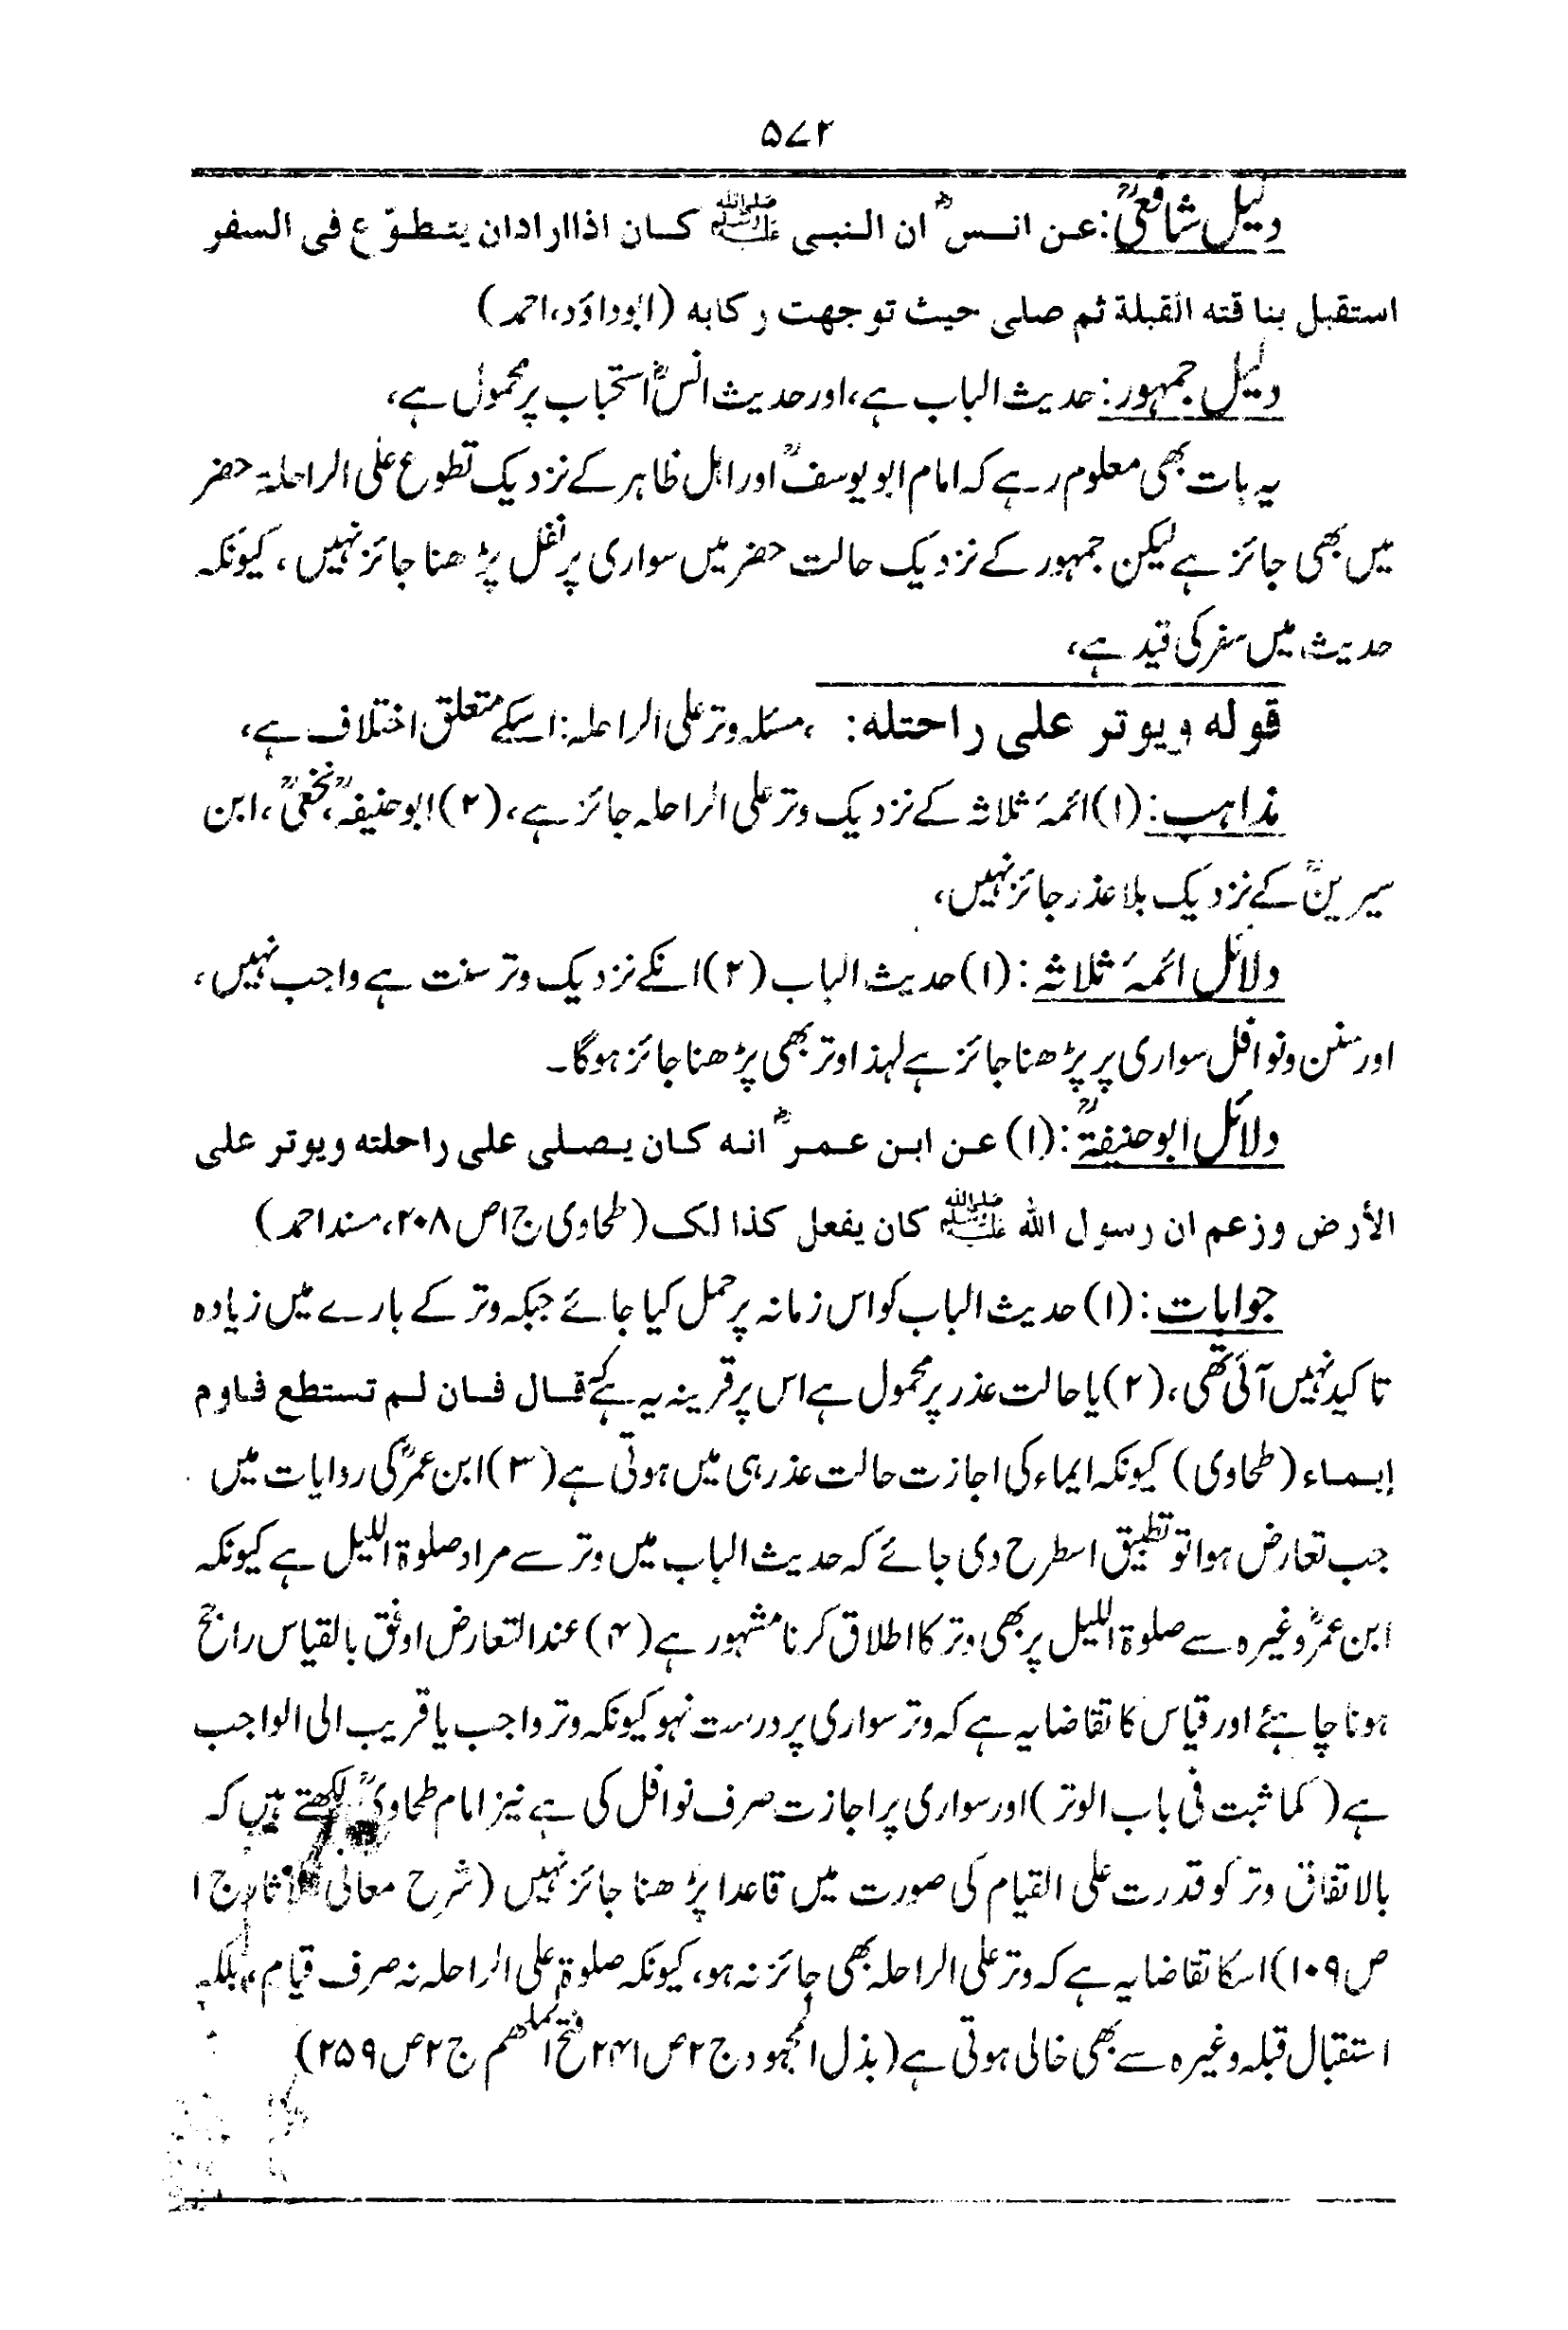 ۵۷۲
دلیل شافعیؒ: عن انسؓ ان النبی ﷺ کان اذا اراد ان یتطوّع فی السفر
استقبل بناقته القبلة ثم صلی حیث توجهت رکابه (ابوداؤد، احمد)
دلیل جمہور: حدیث الباب ہے، اور حدیث انسؓ استحباب پر محمول ہے،
یہ بات بھی معلوم رہے کہ امام ابو یوسفؒ اور اہل ظاہر کے نزدیک تطوع علی الراحلۃ حضر
میں بھی جائز ہے لیکن جمہور کے نزدیک حالت حضر میں سواری پر نفل پڑھنا جائز نہیں، کیونکہ
حدیث میں سفر کی قید ہے،
قوله ویوتر علی راحتله: ، مسئلہ وتر علی الراحلہ: اسکے متعلق اختلاف ہے،
مذاہب: (۱) ائمۂ ثلاثہ کے نزدیک وتر علی الراحلہ جائز ہے، (۲) ابوحنیفہؒ، نخعیؒ، ابن
سیرینؒ کے نزدیک بلا عذر جائز نہیں،
دلائل ائمۂ ثلاثہ: (۱) حدیث الباب (۲) انکے نزدیک وتر سنت ہے واجب نہیں،
اور سنن و نوافل سواری پر پڑھنا جائز ہے لہذا وتر بھی پڑھنا جائز ہوگا۔
دلائل ابوحنیفۃؒ: (۱) عن ابن عمرؓ انه کان یصلی علی راحلته ویوتر علی
الأرض وزعم ان رسول الله ﷺ کان یفعل کذالک (طحاوی ج۱ ص۲۰۸، مسند احمد)
جوابات: (۱) حدیث الباب کو اس زمانہ پر حمل کیا جائے جبکہ وتر کے بارے میں زیادہ
تاکید نہیں آئی تھی، (۲) یا حالت عذر پر محمول ہے اس پر قرینہ یہ ہے قال فان لم تستطع فاوم
إیماء (طحاوی) کیونکہ ایماء کی اجازت حالت عذر ہی میں ہوتی ہے (۳) ابن عمرؓ کی روایات میں
جب تعارض ہوا تو تطبیق اسطرح دی جائے کہ حدیث الباب میں وتر سے مراد صلوۃ اللیل ہے کیونکہ
ابن عمرؓ وغیرہ سے صلوۃ اللیل پر بھی وتر کا اطلاق کرنا مشہور ہے (۴) عند التعارض اوفق بالقیاس راجح
ہونا چاہئے اور قیاس کا تقاضا یہ ہے کہ وتر سواری پر درست نہو کیونکہ وتر واجب یا قریب الی الواجب
ہے (کما ثبت فی باب الوتر) اور سواری پر اجازت صرف نوافل کی ہے نیز امام طحاویؒ لکھتے ہیں کہ
بالاتفاق وتر کو قدرت علی القیام کی صورت میں قاعدا پڑھنا جائز نہیں (شرح معانی الآثار ج۱
ص۱۰۹) اسکا تقاضا یہ ہے کہ وتر علی الراحلہ بھی جائز نہ ہو، کیونکہ صلوۃ علی الراحلہ نہ صرف قیام، بلکہ
استقبال قبلہ وغیرہ سے بھی خالی ہوتی ہے (بذل المجہود ج۲ ص۲۴۱ فتح الملھم ج۲ ص۲۵۹)